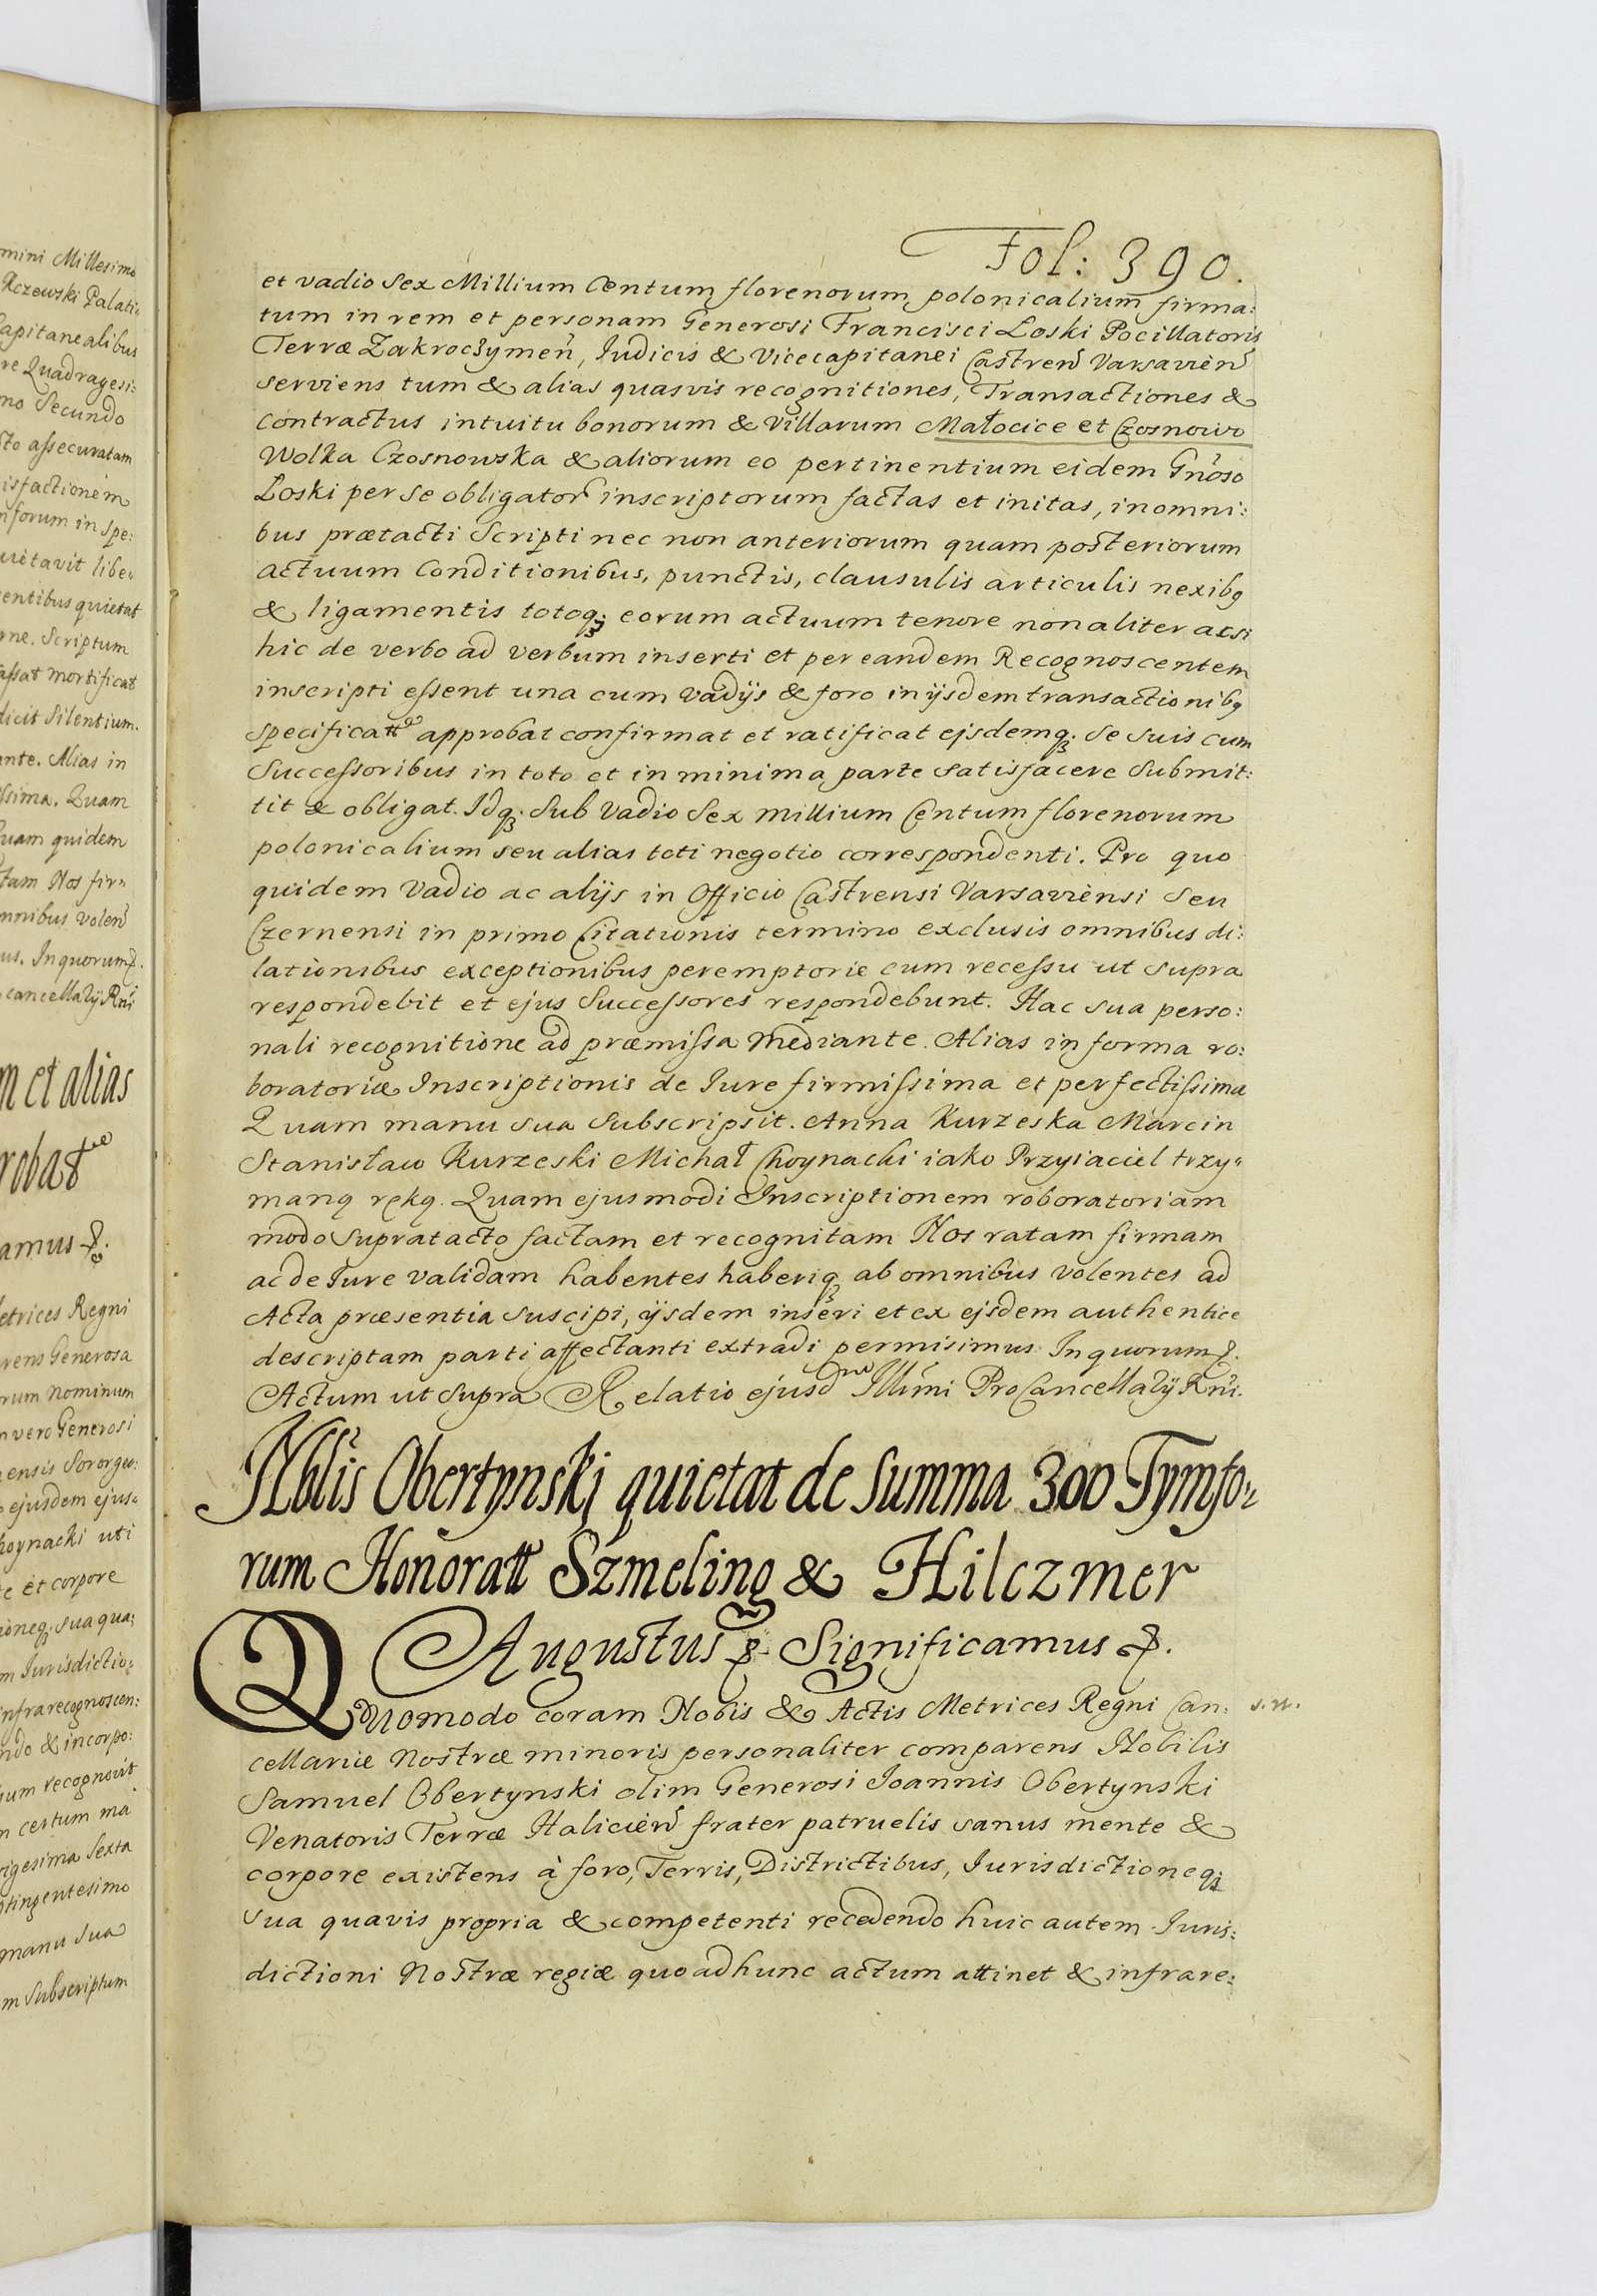 Fol: 390.
et vadio Sex Millium Centum florenorum polonicalium firma:
tum in rem et personam Generosi Francisci Loski Pocillatoris
Terræ Zakroczymeñ, Iudicis & Vicecapitanei Castreñ Varsavieñ
serviens tum & alias quasvis recognitiones, Transactiones &
contractus intuitu bonorum & Villarum Małocice et Czosnowo
Wolka Czosnowska & aliorum eo pertinentium eidem Gnoso
Loski per se obligator inscriptorum factas et initas, in omni:
bus prætacti Scripti nec non anteriorum quam posteriorum
actuum Conditionibus, punctis, clausulis articulis nexibq
& ligamentis totoq; eorum actuum tenore non aliter acsi
hic de verbo ad verbum inserti et per eandem Recognoscentem
inscripti essent una cum vadijs & foro in ijsdem transactionibq
specificatt approbat confirmat et ratificat ejsdemq; Se Suis cum
Successoribus in toto et in minima parte satisfacere Submit:
tit & obligat. Idq; Sub Vadio Sex millium Centum florenorum
polonicalium seu alias toti negotio correspondenti. Pro quo
quidem Vadio ac alijs in Officio Castrensi Varsaviensi Seu
Czernensi in primo Citationis termino exclusis omnibus di:
lationibus exceptionibus peremptorie cum recessu ut supra
respondebit et ejus Successores respondebunt. Hac sua perso:
nali recognitione ad præmissa mediante. Alias in forma ro:
boratoriæ Inscriptionis de Iure firmissima et perfectissima
Quam manu sua Subscripsit. Anna Kurzeska Marcin
Stanisław Kurzeski Michał Choynacki iako Przyiaciel trzy"
maną ręką. Quam ejusmodi Inscriptionem roboratoriam
modo Supratacto factam et recognitam Nos ratam firmam
ac de Iure validam habentes haberiq; ab omnibus volentes ad
Acta præsentia suscipi, ijsdem inseri et ex ejsdem authentice
descriptam parti affectanti extradi permisimus In quorum &.
Actum ut Supra Relatio ejusd Illmi ProCancellarij Rni.
Nblis Obertynski quietat de Summa 300 Tymfo"
rum Honoratt Szmeling & Hilczmer
Augustus &. Significamus &.
Quomodo coram Nobis & Actis Metrices Regni Can: s. n.
cellariæ Nostræ minoris personaliter comparens Nobilis
Samuel Obertynski olim Generosi Ioannis Obertynski
Venatoris Terræ Halicieñ frater patruelis sanus mente &
corpore existens à foro, Terris, Districtibus, Iurisdictioneq;
sua quavis propria & competenti recedendo huic autem Iuris:
dictioni Nostræ regiæ quo ad hunc actum attinet & infrare: